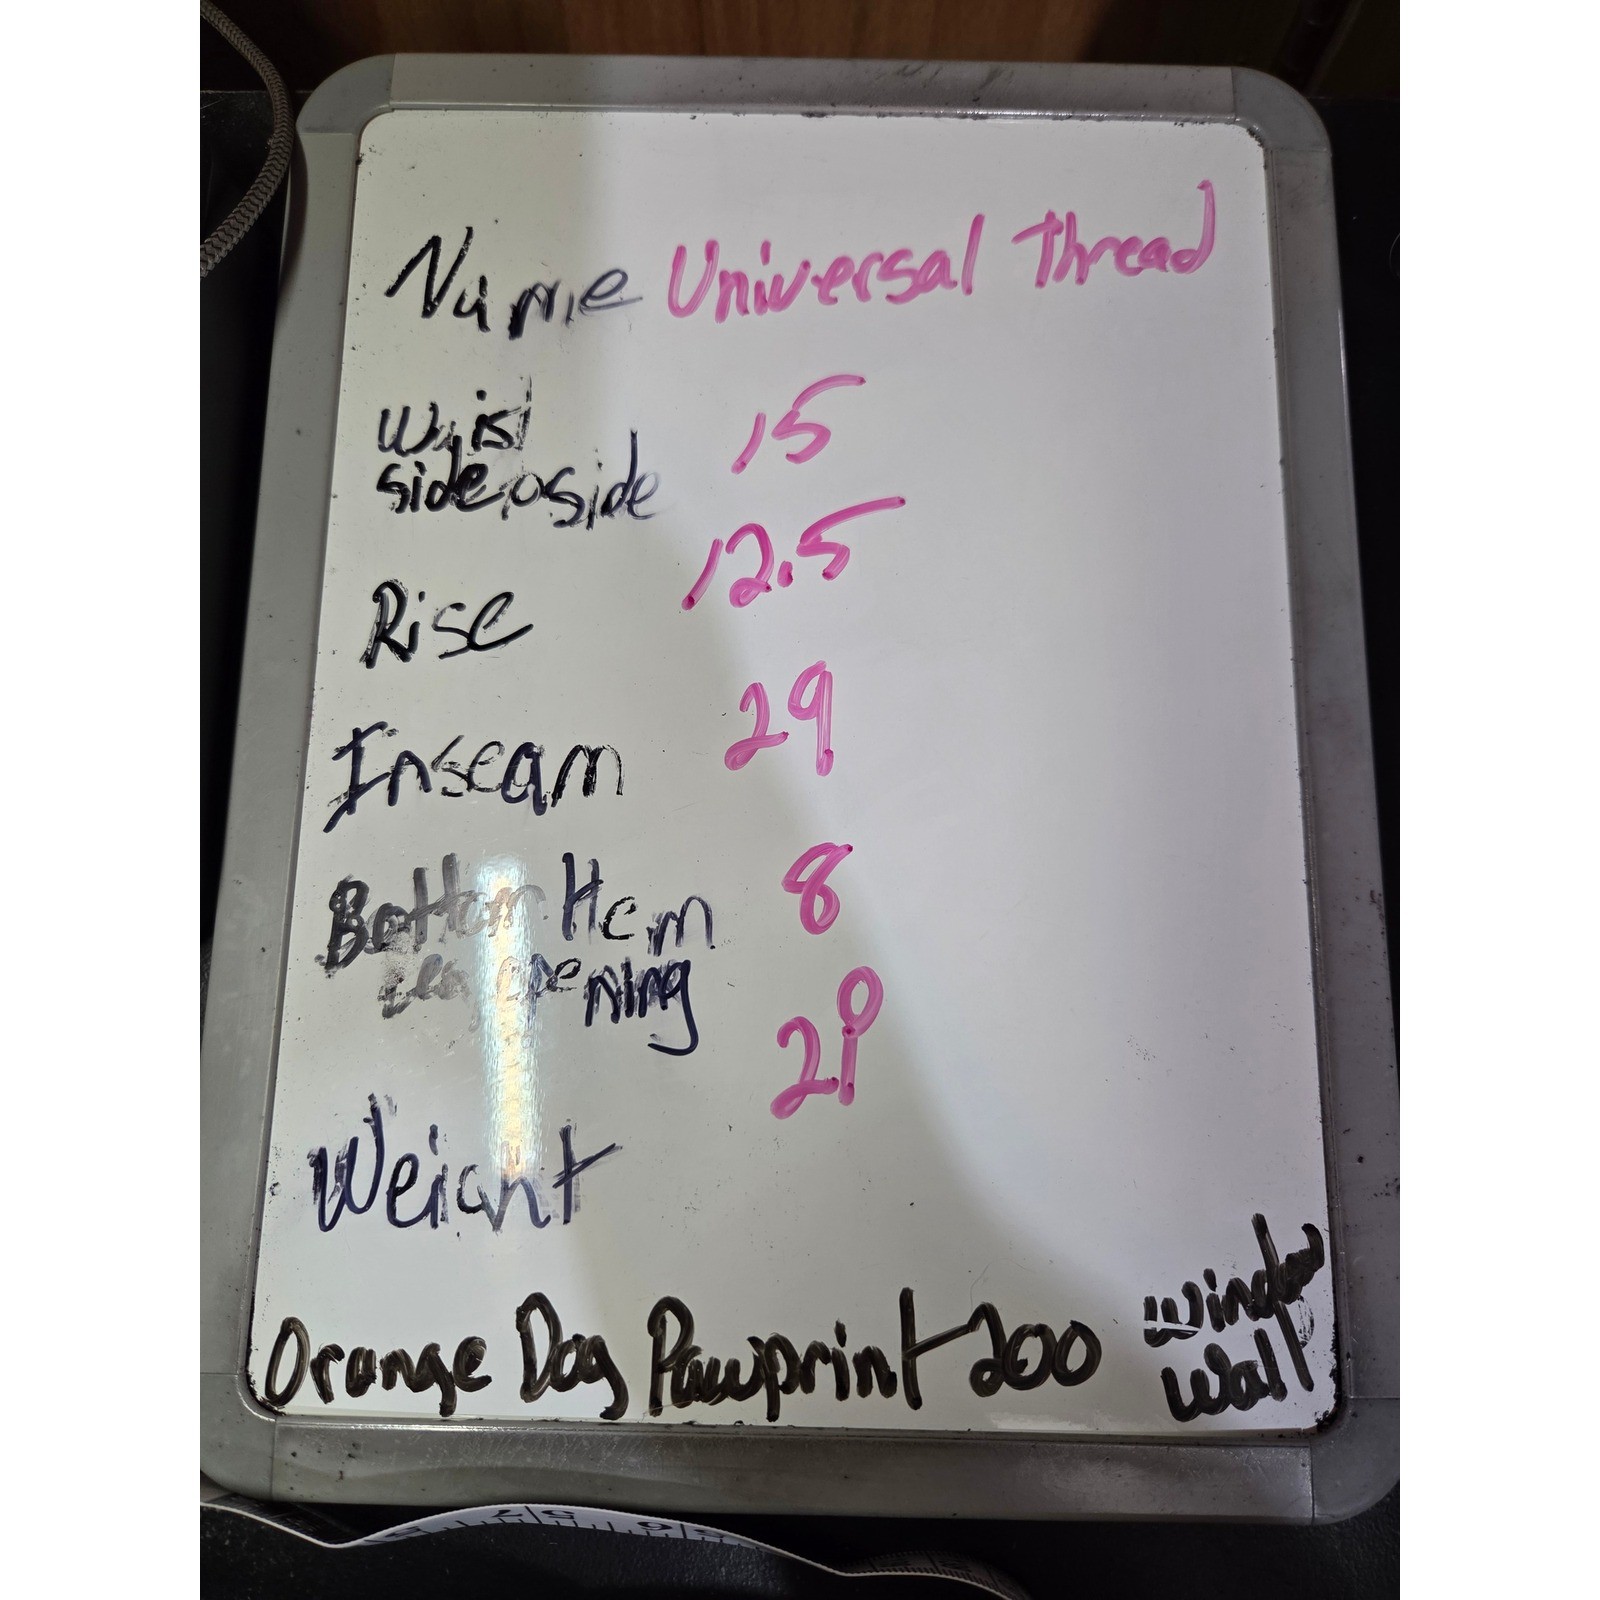 Name Universal Thread
Waist 15
side to side
Rise 12.5
Inseam 29
Bottom Hem 8
Leg opening
Weight
Orange Dog Pawprint 200
Window
Wall